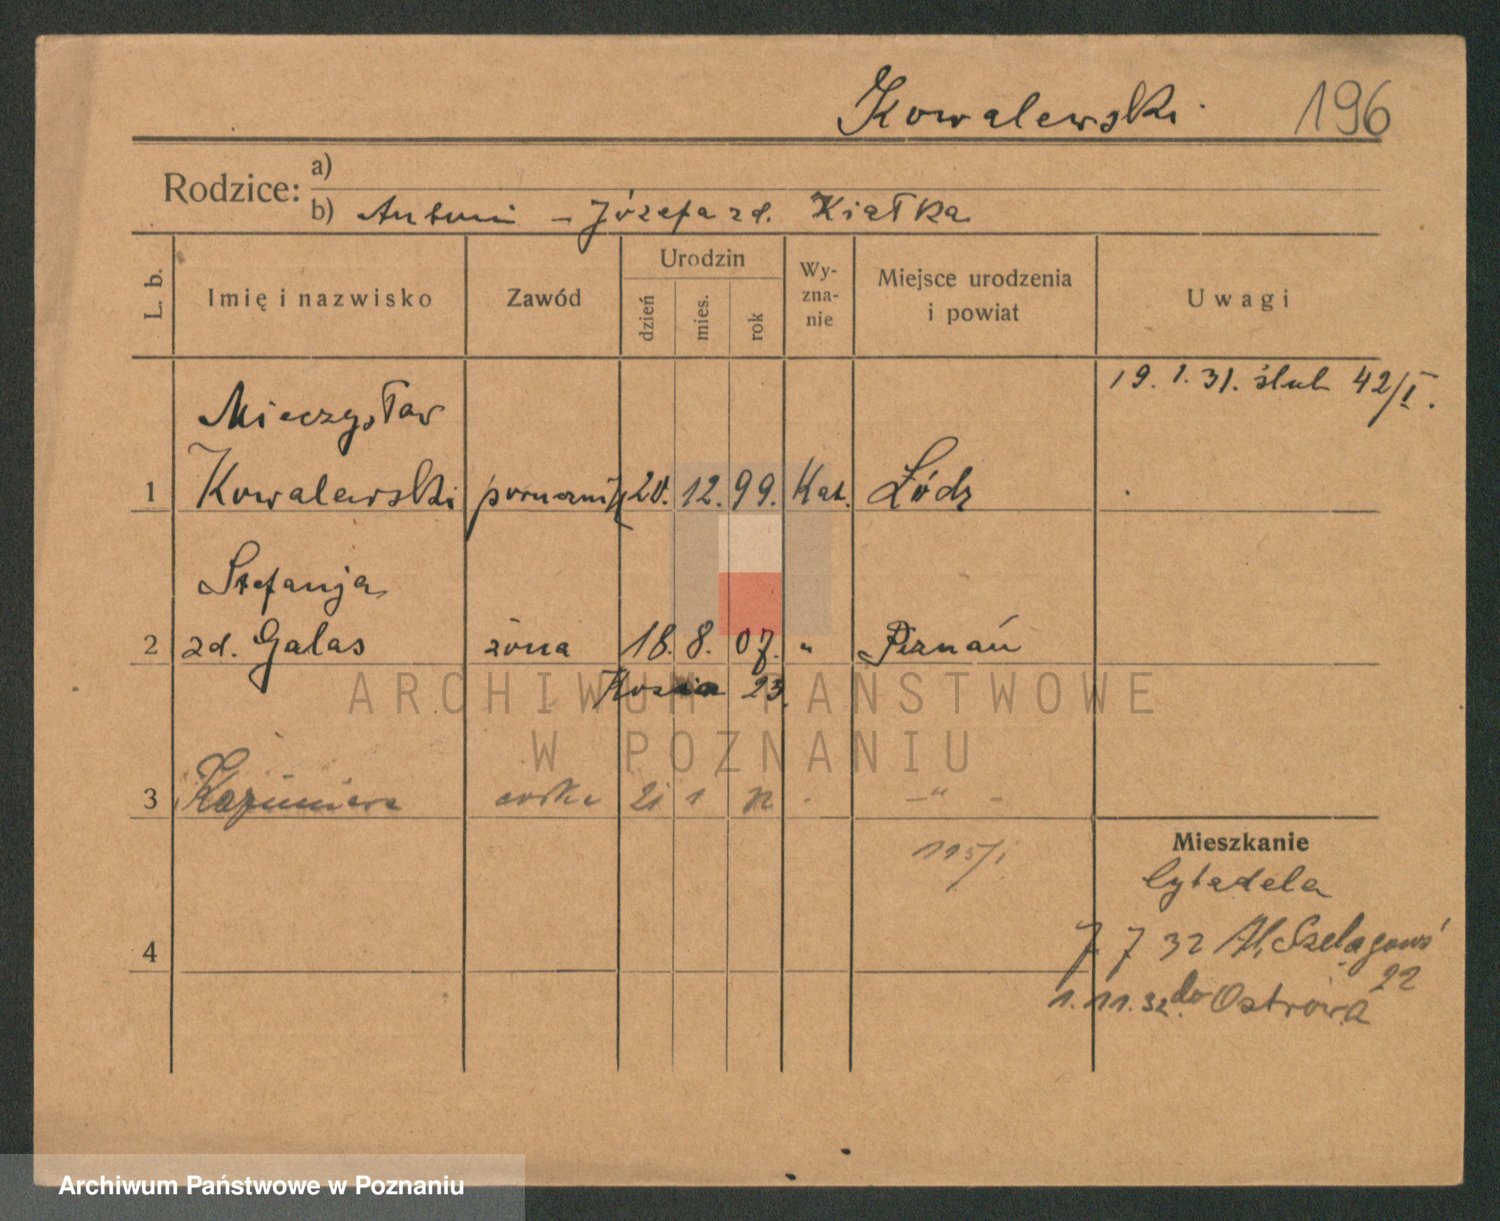 Kowalewski 196
Rodzice: a)
b) Antoni – Józefa zd. Kiałka
L. b. Imię i nazwisko Zawód Urodzin dzień mies. rok Wy-zna-nie Miejsce urodzenia i powiat Uwagi
19. 1. 31. ślub 42/I.
Mieczysław
1 Kowalewski porucznik 20. 12. 99. Kat. Łódz
Stefanja
2 zd. Galas żona 18. 8. 07. " Poznań
23.
ARCHIWUM PAŃSTWOWE
W POZNANIU
3 Kazimiera córka 21 1 32 - " -
195/I
Mieszkanie
Cytadela
7 7 32 Al. Szelągows'
22
4
1. 11. 32 do Ostrowa
Archiwum Państwowe w Poznaniu